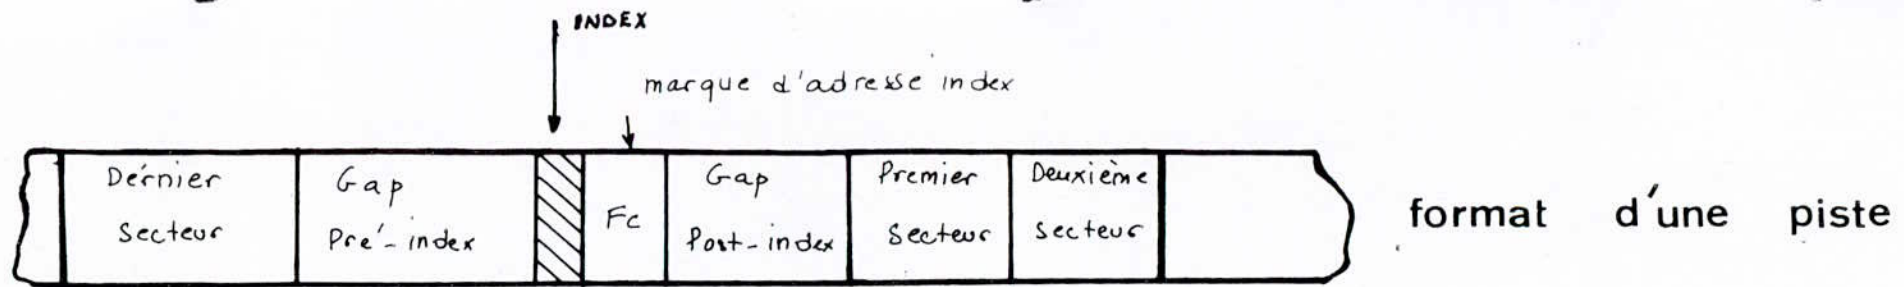 INDEX
marque d'adresse index
Dérnier
Secteur
Gap
Pré-index
Fc
Gap
Post-index
Premier
Secteur
Deuxième
secteur
format d'une piste